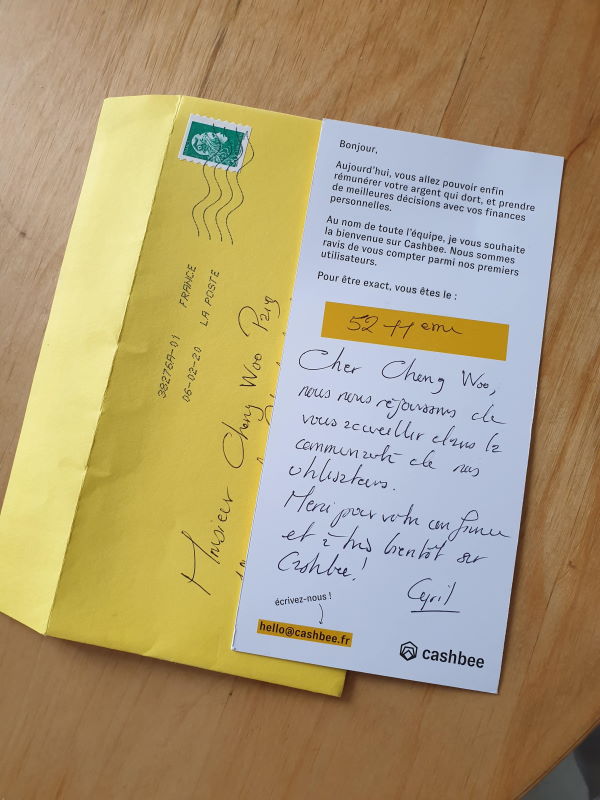 38276A-01 FRANCE
06-02-20 LA POSTE
Monsieur Cheng Woo
Bonjour,
Aujourd'hui, vous allez pouvoir enfin
rémunérer votre argent qui dort, et prendre
de meilleures décisions avec vos finances
personnelles.
Au nom de toute l'équipe, je vous souhaite
la bienvenue sur Cashbee. Nous sommes
ravis de vous compter parmi nos premiers
utilisateurs.
Pour être exact, vous êtes le :
ème
Cher Cheng Woo,
nous nous réjouissons de
vous accueillir dans la
communauté de nos
utilisateurs.
Merci pour votre confiance
et à très bientôt sur
Cashbee!
Cyril
écrivez-nous !
hello@cashbee.fr
cashbee